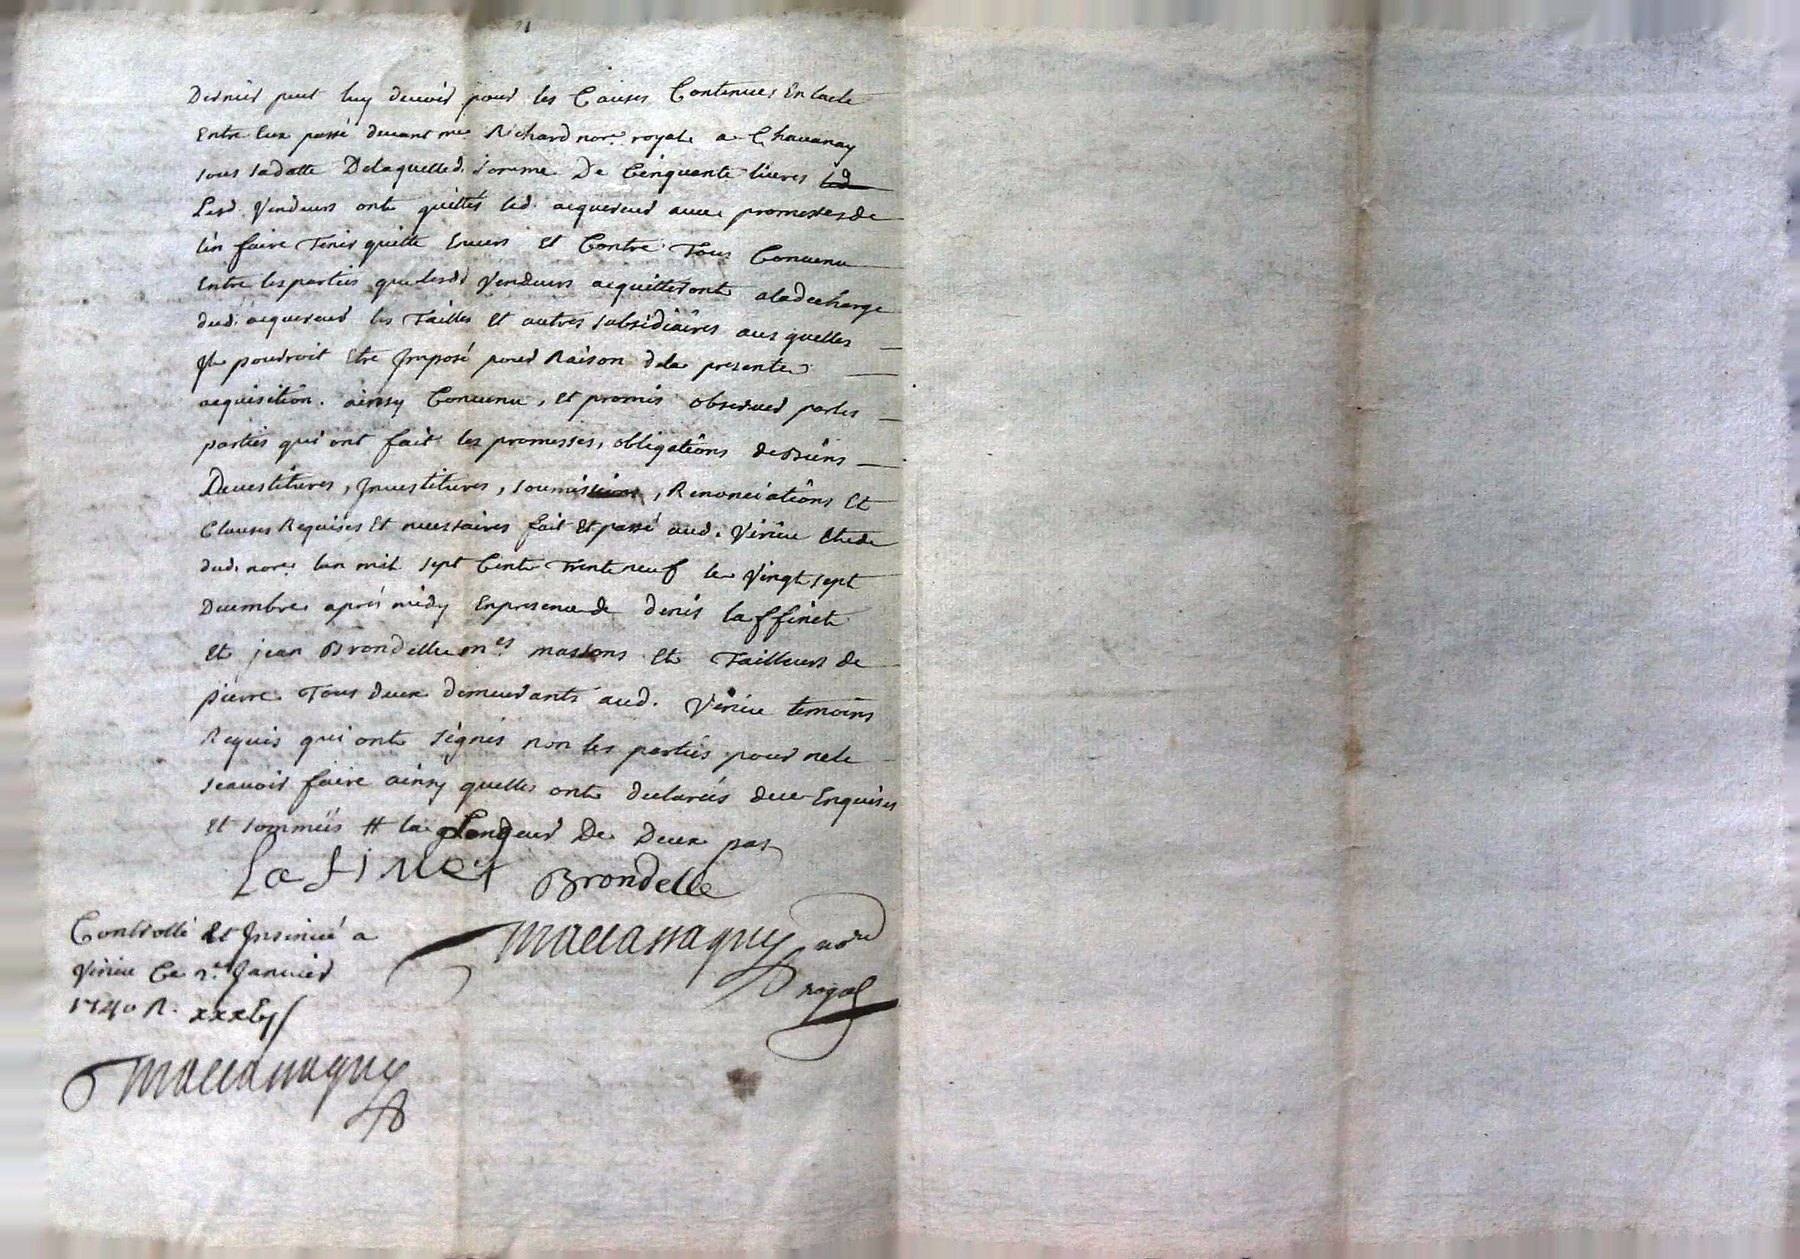 Dernier peut luy devoir pour les Causes Contenues En lacte
Entre Eux passé devant me Richard nore. royale a Chavanay
sous sa datte De laquelled. somme De Cinquante livres led
Lesd. Vendeurs ont quittés led. acquereur avec promesses de
l'en faire Tenir quitte Envers Et Contre Tous Convenu
Entre les parties que lesds Vendeurs acquitteront a la decharge
dud. acquereur les Tailles Et autres subsidiaires aus quelles
Il pourroit Etre Imposé pour Raison de la presente
acquisition. ainsy Convenu, Et promis observer par les
parties qui ont fait les promesses, obligations de biens
Devestitures, Investitures, soumissions, Renonciations Et
Clauses Requises Et necessaires fait Et passé aud. Virieu Etude
dud. nore. lan mil sept Cent Trente neuf le Vingt sept
Decembre après midy En presence de denis laffinet
Et jean Brondelle mes. massons Et Tailleurs de
pierre Tous deux demeurants aud. Virieu temoins
Requis qui ont signés non les parties pour ne le
scavoir faire ainsy quelles ont declarées de ce Enquises
Et sommées # la Longeur De Deux pas
La fi Net Brondelle
Controllé Et Insinué a
Virieu Ce 2e. Janvier
1740 R.
Maccassaguy nore
royal
Maccassaguy